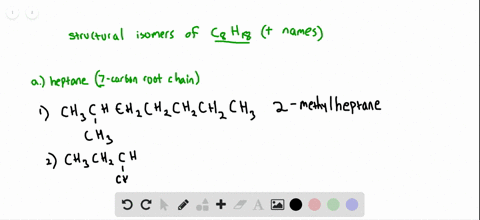 structural isomers of C8H18 (+ names)
a.) heptane (7-carbon root chain)
1) CH3CHCH2CH2CH2CH2CH3 2-methylheptane
CH3
2) CH3CH2CH
CH